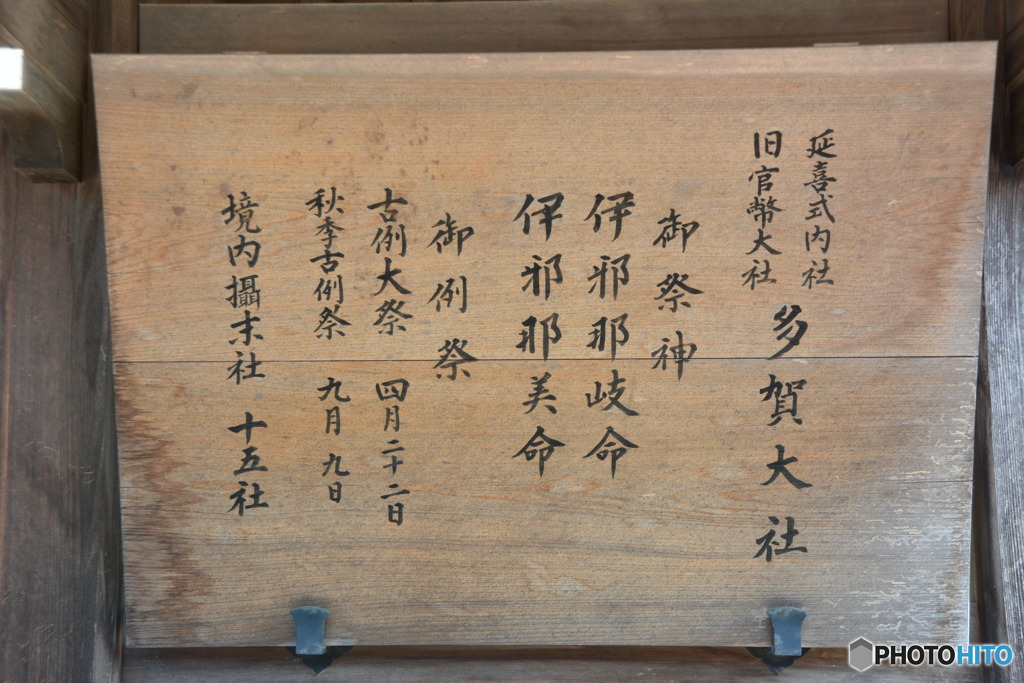 延喜式内社
旧官幣大社
多賀大社
御祭神
伊邪那岐命
伊邪那美命
御例祭
古例大祭 四月二十二日
秋季古例祭 九月九日
境内攝末社 十五社
PHOTOHITO